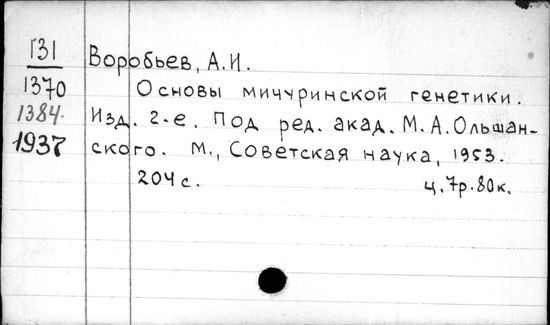 Г31
1370
1384.
1937
Воробьев, А.И.
Основы мичуринской генетики.
Изд. 2-е. Под ред. акад. М.А.Ольшан-
ского. М., Советская наука, 1953.
204 с. ц.7р.80к.